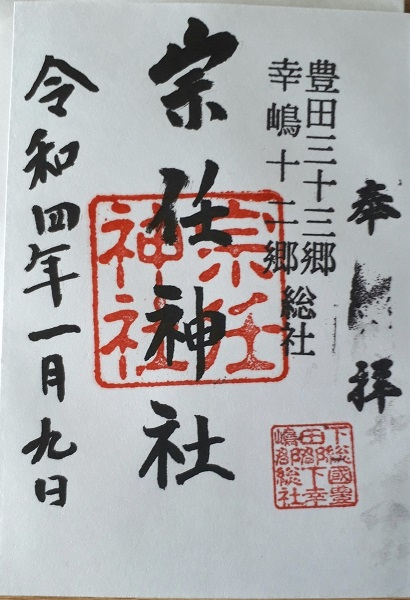 奉拝
豊田三十三郷
幸嶋十二郷 総社
宗任神社
宗任
神社
下総國豊
田郡下幸
嶋郡総社
令和四年一月九日